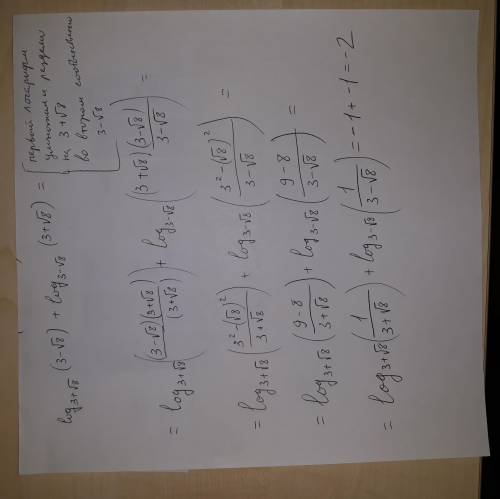 log₃₊√₈ (3-√8) + log₃₋√₈ (3+√8) = [первый логарифм
умножал и раздели
на 3+√8
во втором соответственно
3-√8]
= log₃₊√₈ ((3-√8)(3+√8)/(3+√8)) + log₃₋√₈ ((3+√8)(3-√8)/(3-√8)) =
= log₃₊√₈ (3²-(√8)²/3+√8) + log₃₋√₈ (3²-(√8)²/3-√8) =
= log₃₊√₈ (9-8/3+√8) + log₃₋√₈ (9-8/3-√8) =
= log₃₊√₈ (1/3+√8) + log₃₋√₈ (1/3-√8) = -1+-1=-2